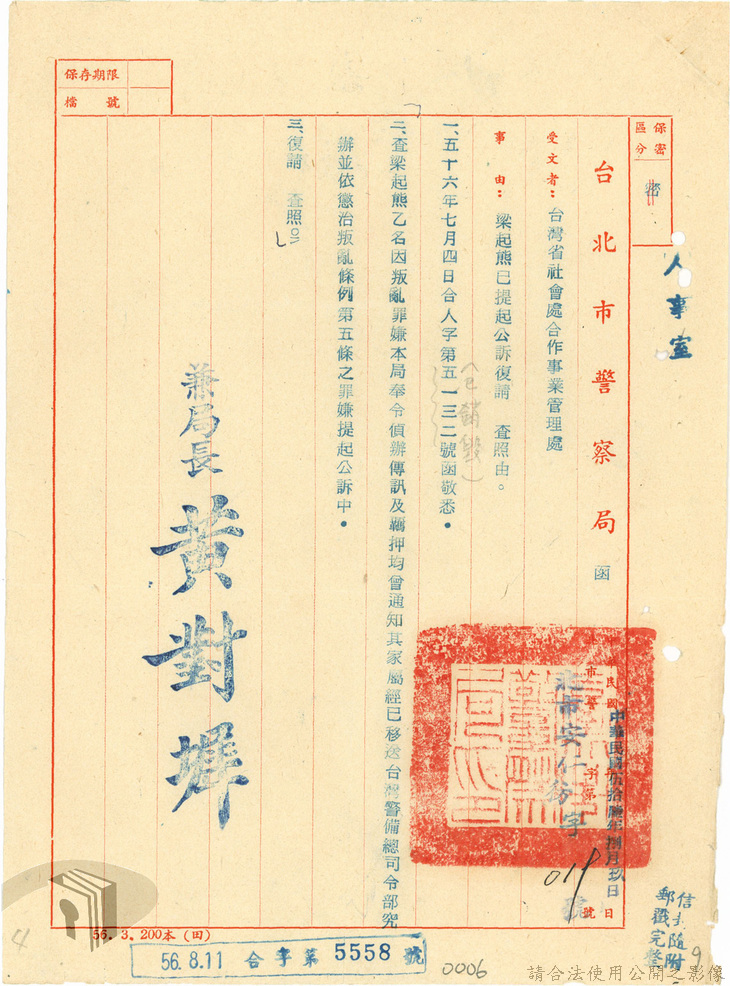 保存期限
檔號
保密區分
密
人事室
台北市警察局 函
受文者：台灣省社會處合作事業管理處
事由：梁起熊已提起公訴復請 查照由。
一、五十六年七月四日合人字第五一三二號函敬悉。
（已銷毀）
二、查梁起熊乙名因叛亂罪嫌本局奉令偵辦傳訊及羈押均曾通知其家屬經已移送台灣警備總司令部究
辦並依懲治叛亂條例第五條之罪嫌提起公訴中。
三、復請 查照。
兼局長 黃對墀
中華民國伍拾陸年捌月玖日
北市安仁份字
字第 號
日
信封隨附
郵戳完整
9
56. 3. 200本（田）
56. 8. 11 合字第 5558 號
0006
4
請合法使用公開之影像